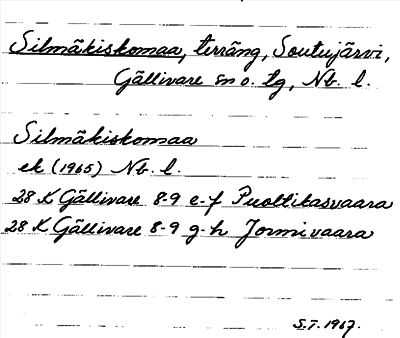 Silmäkiskomaa, terräng, Soutujärvi,
Gällivare sn o. tg, Nb. l.
Silmäkiskomaa
ek (1965) Nb. l.
28 K Gällivare 8-9 e-f Puoltikasvaara
28 K Gällivare 8-9 g-h Jormivaara
S.T. 1967.